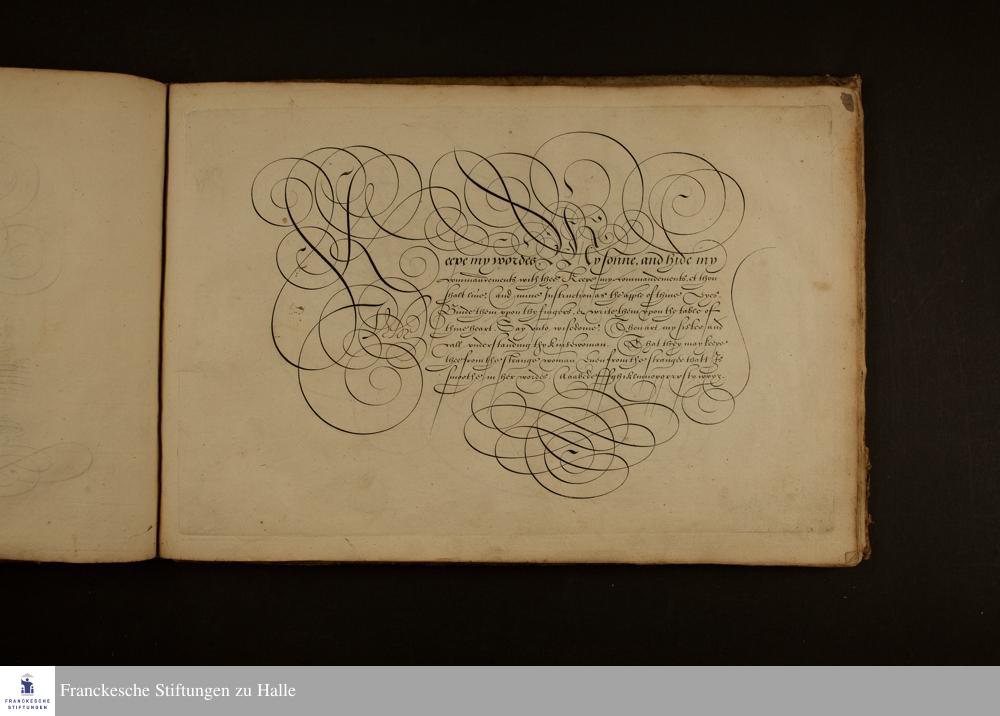 Keepe my wordes My sonne, and hide my
commaundements with thee. Keepe my commaundements, et thou
shalt liue, and mine Instruction as the apple of thine Eyes.
Binde them vpon thy fingers, & write them vpon the table of
thine heart. Say vnto wisedome, Thou art my sister, and
call vnderstanding thy Kinswoman. That they may keepe
thee from the strange woman Euen from the stranger that Is
smoothe in her wordes.
FRANCKESCHE
STIFTUNGEN
Franckesche Stiftungen zu Halle